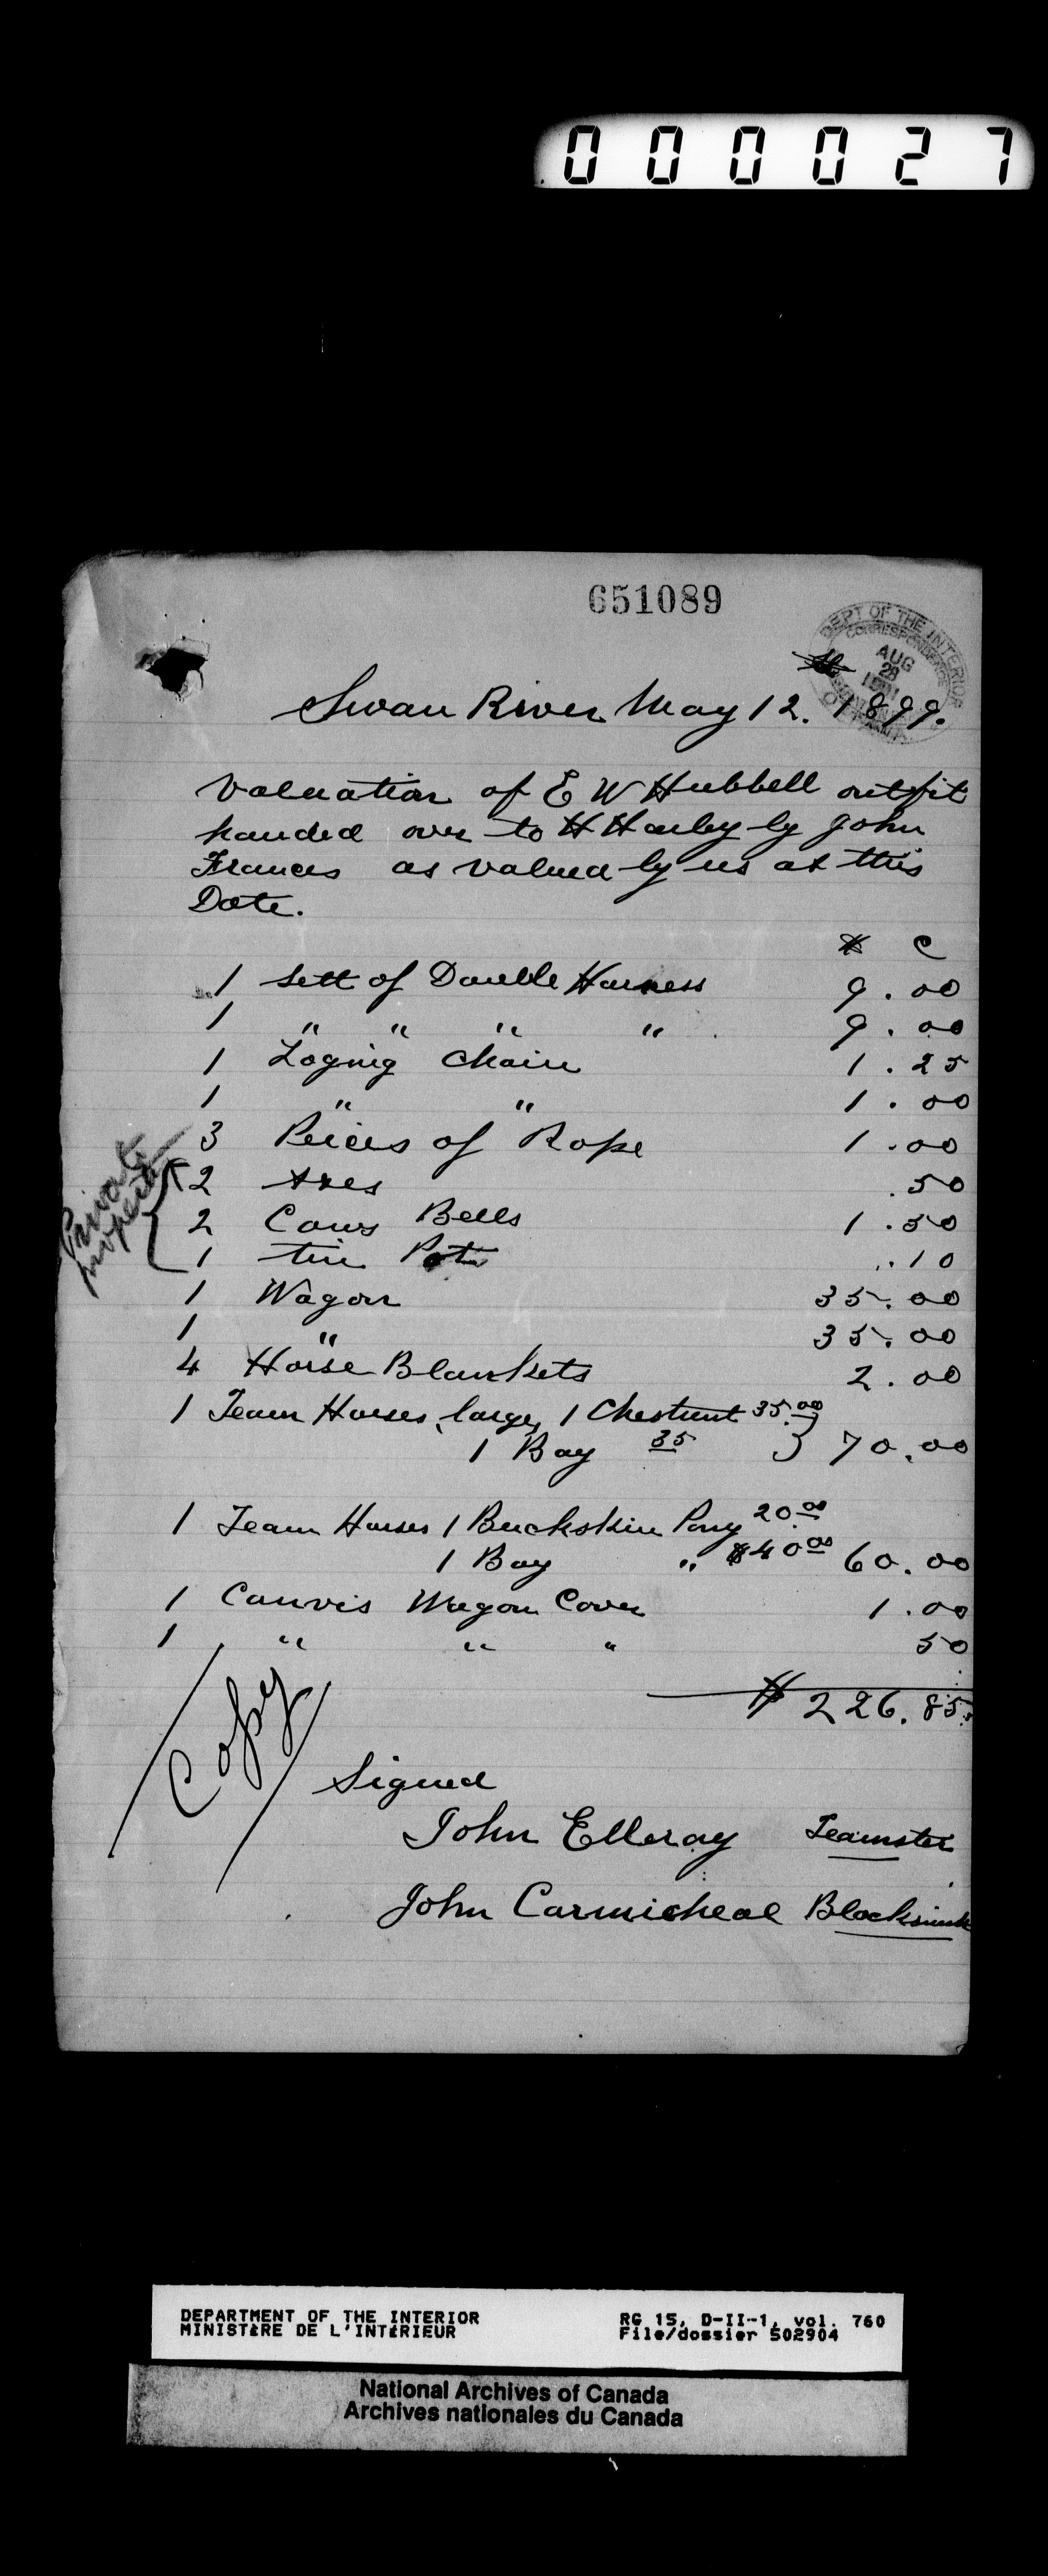 000027
651089
DEPT OF THE INTERIOR
CORRESPONDENCE
AUG
28
1901
Swan River May 12. 1899.
Valuation of E W Hubbell outfit
handed over to H Harley by John
Frances as valued by us at this
Date.
$ C
1 Sett of Double Harness 9.00
1 " " " " 9.00
1 Loging Chain 1.25
1 " " 1.00
3 Peices of Rope 1.00
2 Axes .50
2 Cows Bells 1.50
1 tin Pot .10
Private
property
1 Wagon 35.00
1 " 35.00
4 Horse Blankets 2.00
1 Team Horses, large, 1 Chestnut 35.00
1 Bay 35 } 70.00
1 Team Horses 1 Buckskin Pony 20.00
1 Bay " $40.00 60.00
1 Canvis Wagon Cover 1.00
1 " " " 50
$ 226.85
Copy
Signed
John Elleray Teamster
John Carmicheal Blacksmith
DEPARTMENT OF THE INTERIOR
MINISTÈRE DE L'INTÉRIEUR
RG 15, D-II-1, vol. 760
File/dossier 502904
National Archives of Canada
Archives nationales du Canada